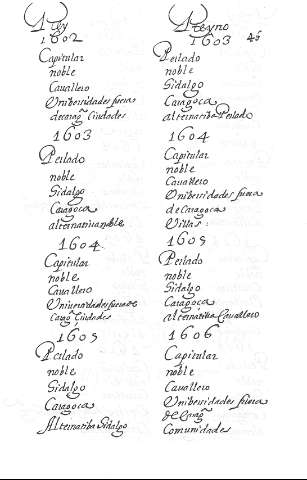 Rey
1602
Capitular
noble
Cauallero
Uniuersidades fuera
de carag.ª Ciudades
1603
Perlado
noble
Hidalgo
Caragoça
alternatiua noble
1604
Capitular
noble
Cauallero
Uniuersidades fuera de
Carag.ª Ciudades
1605
Perlado
noble
Hidalgo
Caragoça
Alternatiba Hidalgo
Reyno
1603
Perlado
noble
Hidalgo
Caragoça
alternatiba Perlado
1604
Capitular
noble
Cauallero
Unibersidades fuera
de Caragoça
Villas
1605
Perlado
noble
Hidalgo
Caragoça
alternatiba Cauallero
1606
Capitular
noble
Cauallero
Unibersidades fuera
de Carag.ª
Comunidades